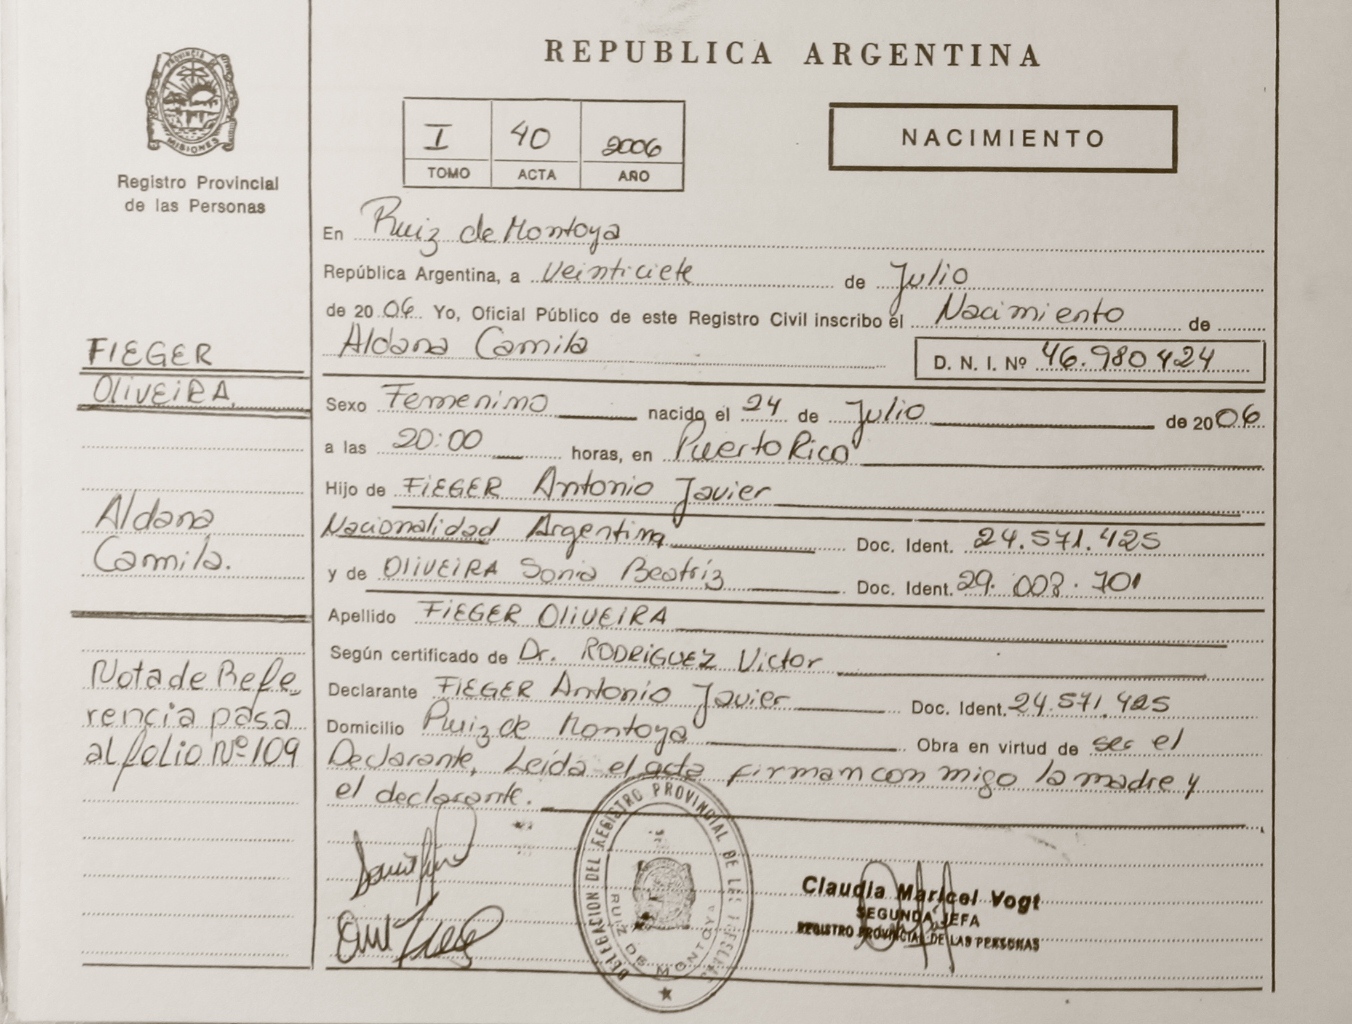 REPUBLICA ARGENTINA
PROVINCIA DE
MISIONES
Registro Provincial
de las Personas
I 40 2006
TOMO ACTA AÑO
NACIMIENTO
En Ruiz de Montoya
República Argentina, a Veinticiete de Julio
de 2006 Yo, Oficial Público de este Registro Civil inscribo el Nacimiento de
Aldana Camila D. N. I. Nº 46.980424
FIEGER
OLIVEIRA,
Sexo Femenino nacido el 24 de Julio de 2006
a las 20:00 horas, en Puerto Rico
Hijo de FIEGER Antonio Javier
Nacionalidad Argentina Doc. Ident. 24.571.425
y de OLIVEIRA Sonia Beatríz Doc. Ident. 29.008.701
Aldana
Camila.
Apellido FIEGER OLIVEIRA
Según certificado de Dr. RODRIGUEZ Victor
Declarante FIEGER Antonio Javier Doc. Ident. 24.571.425
Domicilio Ruiz de Montoya Obra en virtud de ser el
Declarante, Leída el acta firman con migo la madre y
el declarante.
Nota de Refe
rencia pasa
al folio Nº 109
DELEGACION DEL REGISTRO PROVINCIAL DE LAS PERSONAS
RUIZ DE MONTOYA
Claudia Maricel Vogt
SEGUNDA JEFA
REGISTRO PROVINCIAL DE LAS PERSONAS